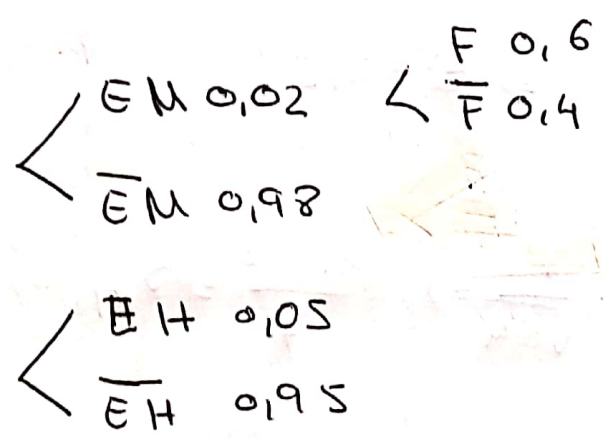 F 0,6
EM 0,02 < F̅ 0,4
E̅M 0,98
EH 0,05
E̅H̅ 0,95